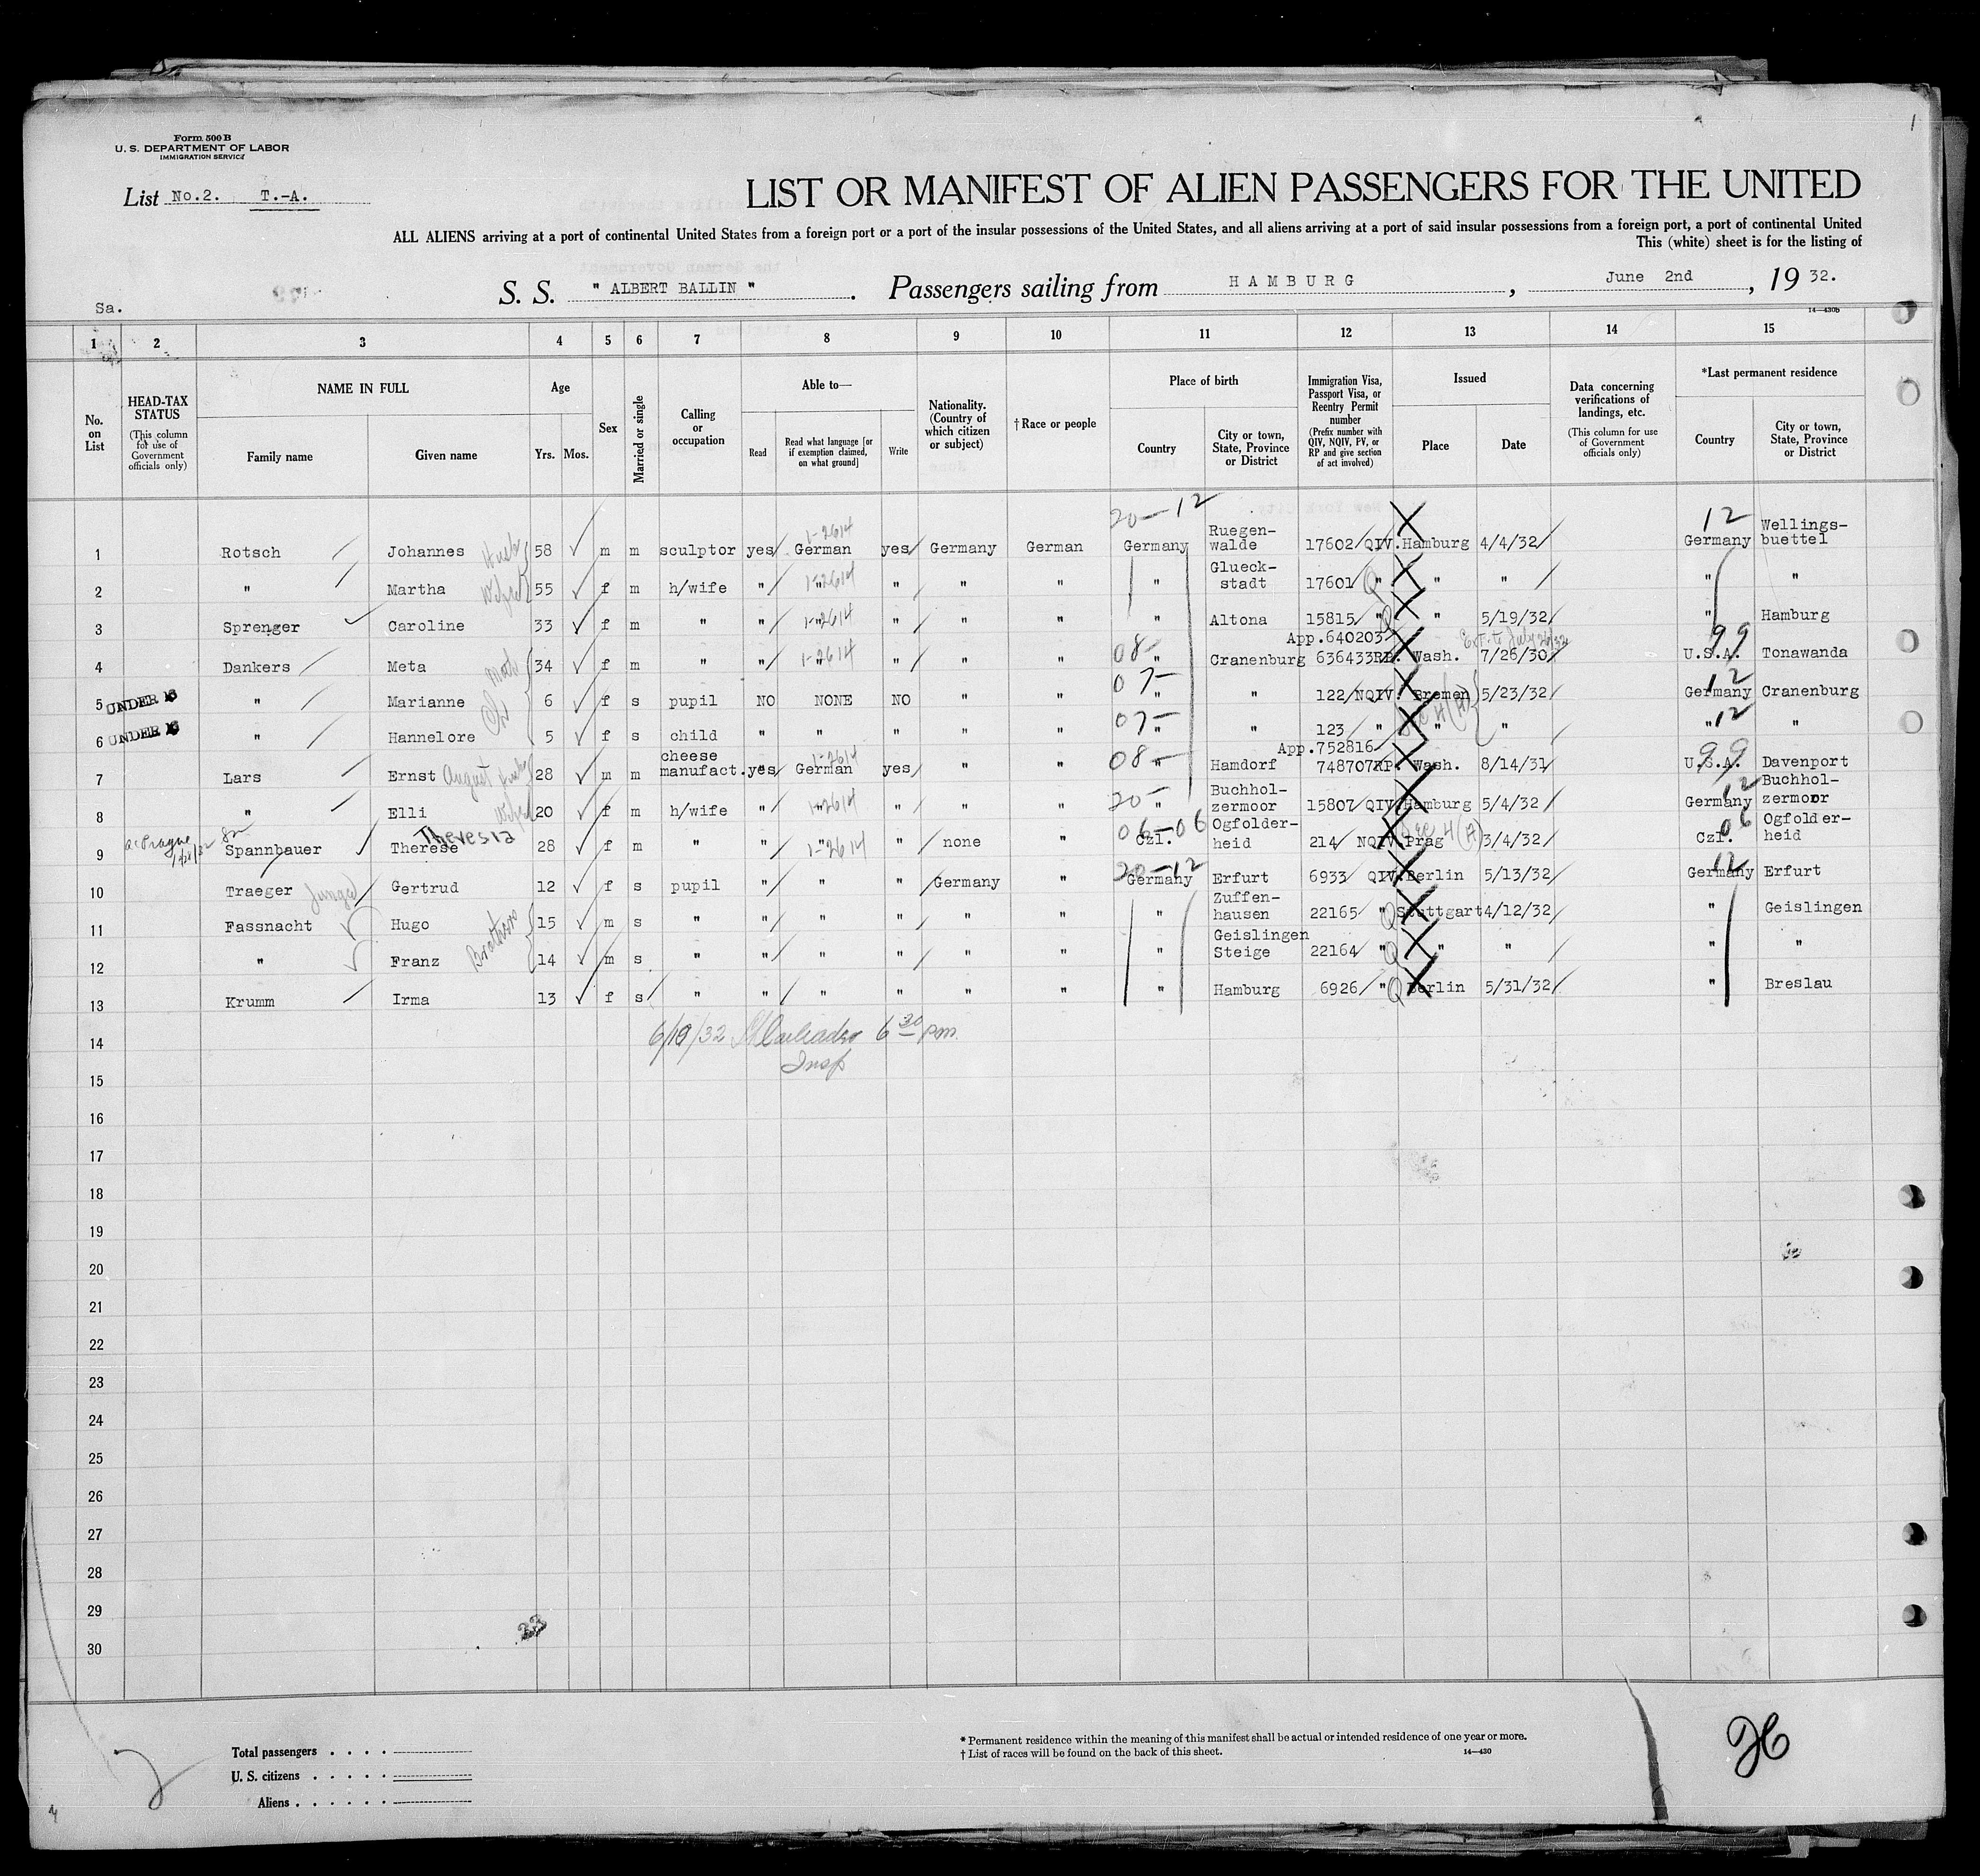 Form 500 B
U. S. DEPARTMENT OF LABOR
IMMIGRATION SERVICE
1
List No.2. T.-A.
LIST OR MANIFEST OF ALIEN PASSENGERS FOR THE UNITED
ALL ALIENS arriving at a port of continental United States from a foreign port or a port of the insular possessions of the United States, and all aliens arriving at a port of said insular possessions from a foreign port, a port of continental United
This (white) sheet is for the listing of
Sa.
S. S. " ALBERT BALLIN ". Passengers sailing from HAMBURG, June 2nd, 19 32.
14—430b
1 2 3 4 5 6 7 8 9 10 11 12 13 14 15
No. on List
HEAD-TAX STATUS (This column for use of Government officials only)
NAME IN FULL
Family name
Given name
Age
Yrs. Mos.
Sex
Married or single
Calling or occupation
Able to—
Read
Read what language [or if exemption claimed, on what ground]
Write
Nationality. (Country of which citizen or subject)
† Race or people
Place of birth
Country
City or town, State, Province or District
Immigration Visa, Passport Visa, or Reentry Permit number (Prefix number with QIV, NQIV, PV, or RP and give section of act involved)
Issued
Place
Date
Data concerning verifications of landings, etc. (This column for use of Government officials only)
*Last permanent residence
Country
City or town, State, Province or District
20—12 12
1 Rotsch Johannes Husb 58 m m sculptor yes 1-2614 German yes Germany German Germany Ruegen-walde 17602 QIV. Hamburg 4/4/32 Germany Wellings-buettel
2 " Martha Wife 55 f m h/wife " 1-2614 " " " " " Glueck-stadt 17601 " Q " " " "
3 Sprenger Caroline 33 f m " " 1-2614 " " " " " Altona 15815 " Q " 5/19/32 " Hamburg
4 Dankers Meta Moth 34 f m " " 1-2614 " " " " 08— " Cranenburg App.640203 636433RP. Wash. 7/26/30 Ext. to July 26/32 99 U.S.A. Tonawanda
5 UNDER 16 " Marianne Ch 6 f s pupil NO NONE NO " " 07— " " 122 NQIV. Bremen 5/23/32 12 Germany Cranenburg
6 UNDER 16 " Hannelore 5 f s child " " " " " 07— " " 123 " " " 12 " "
7 Lars Ernst August Husb 28 m m cheese manufact. yes 1-2614 German yes " " 08— " Hamdorf App.752816 748707RP. Wash. 8/14/31 99 U.S.A. Davenport
8 " Elli Wife 20 f m h/wife " 1-2614 " " " " 20— " Buchhol-zermoor 15807 QIV. Hamburg 5/4/32 12 Germany Buchhol-zermoor
9 Prague Spannbauer Therese Theresia 28 f m " " 1-2614 " " none " 06—06 Czl. Ogfolder-heid 214 NQIV. Prag Sec 4(A) 3/4/32 06 Czl. Ogfolder-heid
10 Traeger Gertrud 12 f s pupil " " " Germany " 20—12 Germany Erfurt 6933 QIV. Berlin 5/13/32 12 Germany Erfurt
11 Fassnacht Hugo Brothers 15 m s " " " " " " " Zuffen-hausen 22165 " Q Stuttgart 4/12/32 " Geislingen
12 " Franz 14 m s " " " " " " " Geislingen Steige 22164 " Q " " " "
13 Krumm Irma 13 f s " " " " " " " Hamburg 6926 " Q Berlin 5/31/32 " Breslau
14 6/10/32 6 30 pm.
Insp
15
16
17
18
19
20
21
22
23
24
25
26
27
28
29
30
Total passengers
U. S. citizens
Aliens
* Permanent residence within the meaning of this manifest shall be actual or intended residence of one year or more.
† List of races will be found on the back of this sheet.
14—430